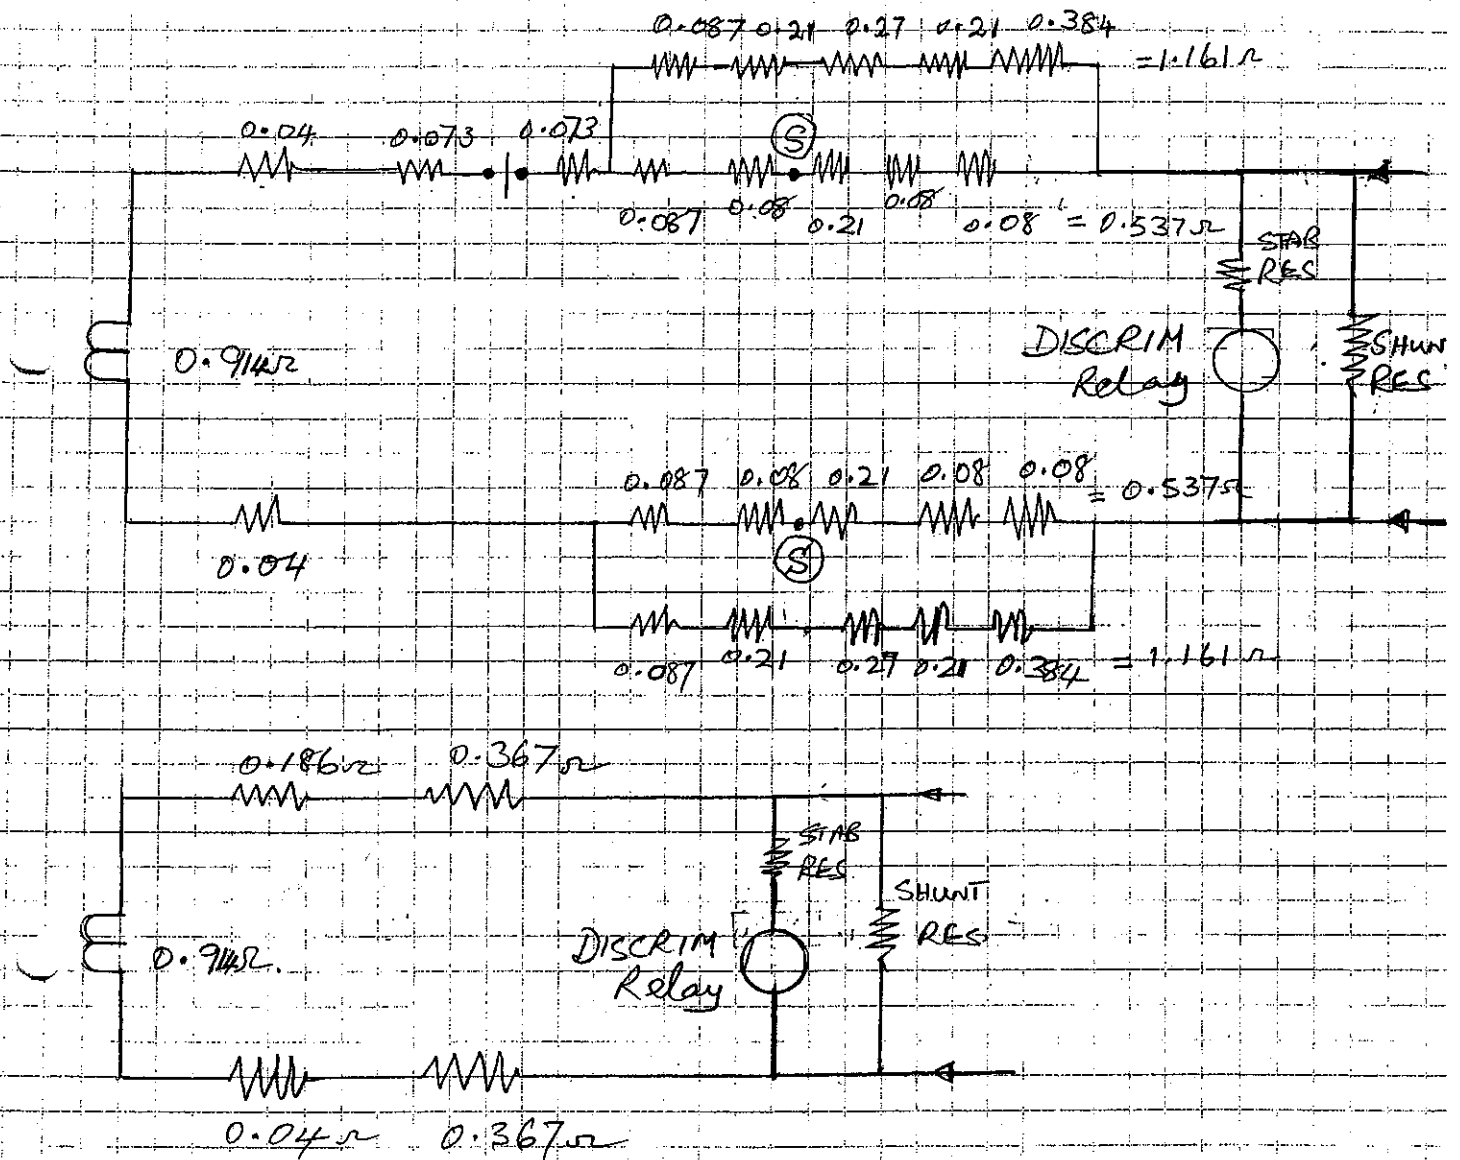 0.087 0.21 0.27 0.21 0.384
=1.161Ω
0.04 0.073 0.073
S
0.087 0.08 0.21 0.08 0.08 = 0.537Ω
STAB
RES
0.914Ω
DISCRIM
Relay
SHUN
RES
0.087 0.08 0.21 0.08 0.08 = 0.537Ω
0.04
S
0.087 0.21 0.27 0.21 0.384 = 1.161Ω
0.186Ω 0.367Ω
STAB
RES
SHUNT
RES
0.914Ω.
DISCRIM
Relay
0.04Ω 0.367Ω